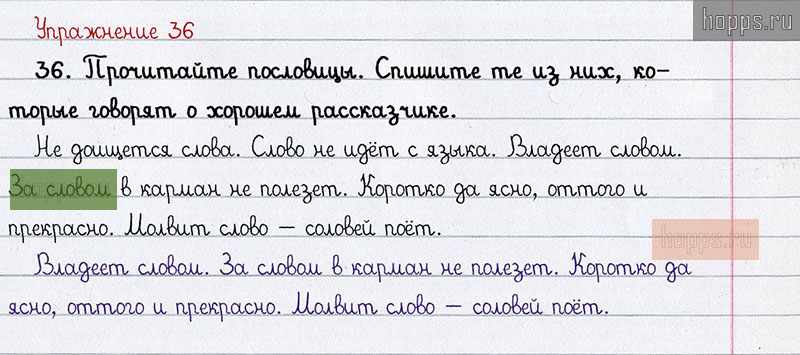 hopps.ru
Упражнение 36
36. Прочитайте пословицы. Спишите те из них, ко-
торые говорят о хорошем рассказчике.
Не доищется слова. Слово не идёт с языка. Владеет словом.
За словом в карман не полезет. Коротко да ясно, оттого и
прекрасно. Молвит слово – соловей поёт.
hopps.ru
Владеет словом. За словом в карман не полезет. Коротко да
ясно, оттого и прекрасно. Молвит слово – соловей поёт.